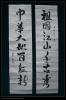 祖國江山千古秀
中華大地百花